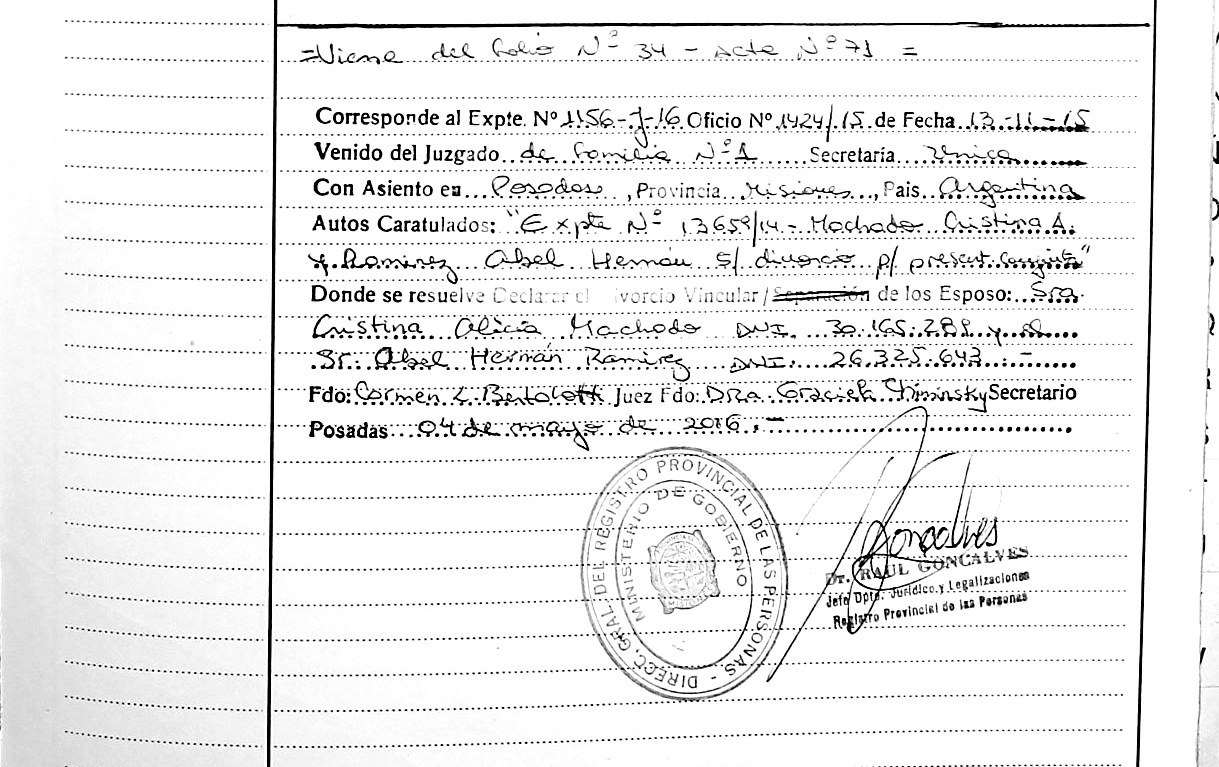 =Viene del folio Nº 34 - Acta Nº 71 =
Corresponde al Expte. Nº 1156-J-16 Oficio Nº 1424/15 de Fecha 13-11-15
Venido del Juzgado de Familia Nº 1 Secretaría Única
Con Asiento en Posadas, Provincia Misiones, Pais Argentina
Autos Caratulados: "Expte Nº 13659/14 - Machado Cristina A.
y Ramirez Abel Hernán s/ divorcio p/ present. conjunta"
Donde se resuelve Declarar el ivorcio Vincular/Separación de los Esposo: Sra.
Cristina Alicia Machado DNI. 30.165.289 y el
Sr. Abel Hernán Ramirez DNI. 26.325.643.-
Fdo: Carmen L. Bertolotti Juez Fdo: Dra. Graciela Secretario
Posadas 04 de mayo de 2016.-
DIRECC. GRAL. DEL REGISTRO PROVINCIAL DE LAS PERSONAS -
MINISTERIO DE GOBIERNO
Goncalves
Dr. RAUL GONCALVES
Jefe Dpto. Jurídico y Legalizaciones
Registro Provincial de las Personas